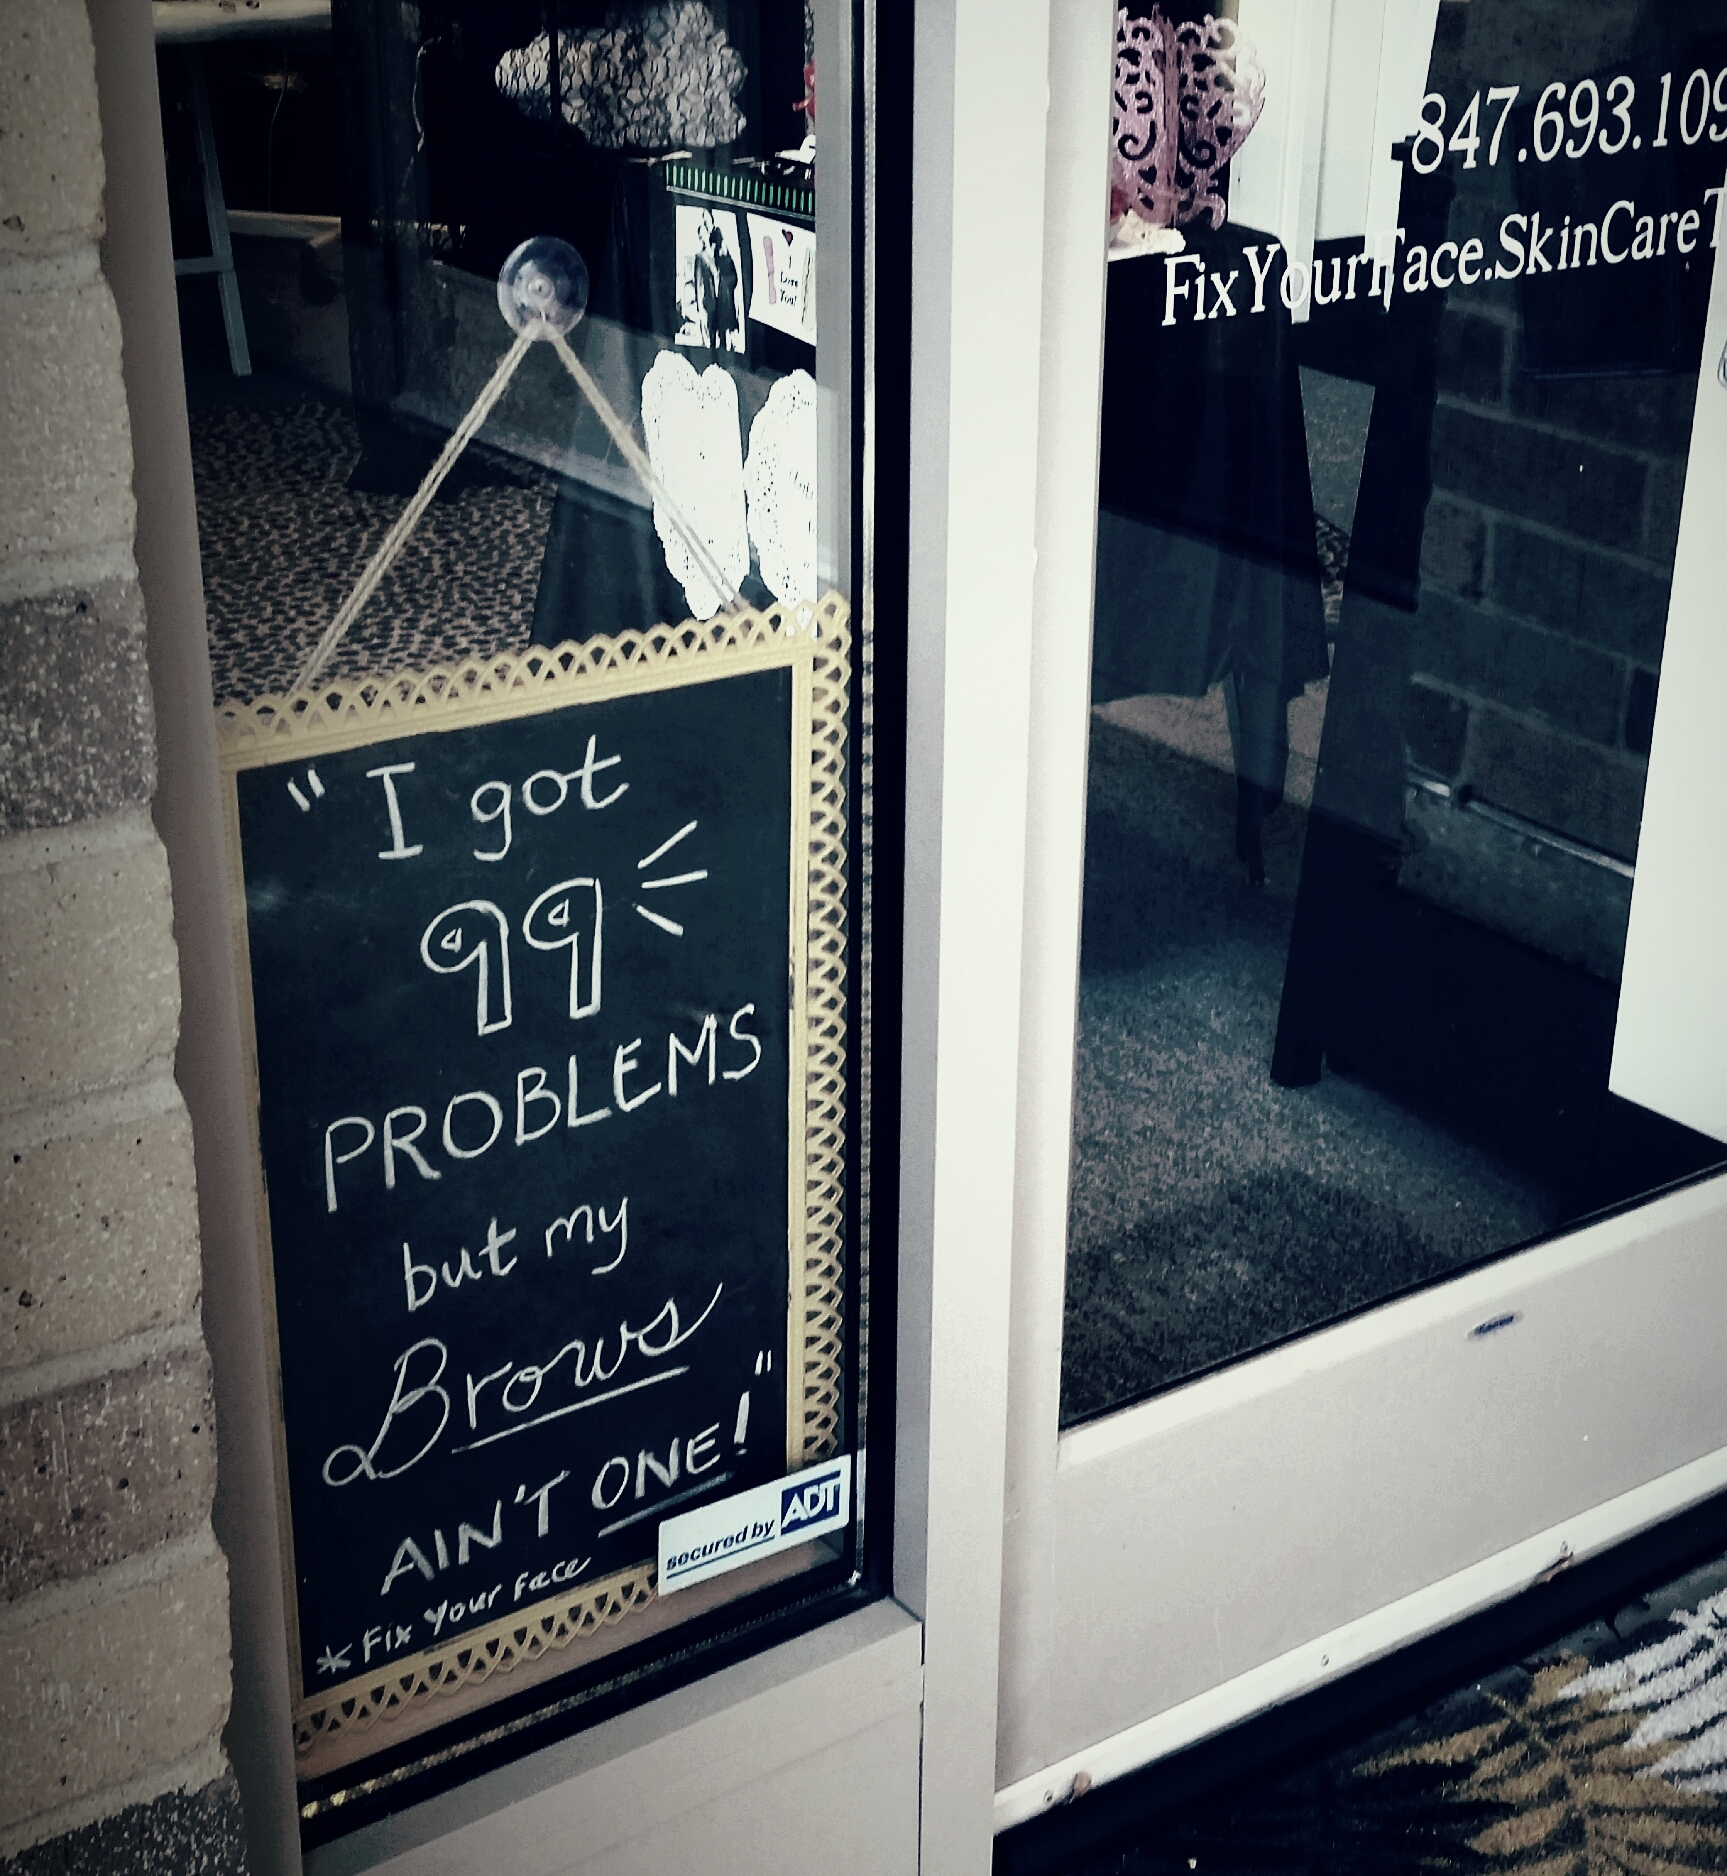 847.693.109
FixYourFace.SkinCareT
I
Love
You!
"I got
99
PROBLEMS
but my
Brows
AIN'T ONE!"
*Fix Your Face
secured by ADT